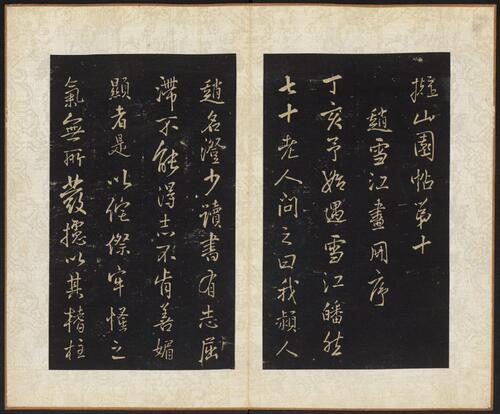 擬山園帖第十
趙雪江畫册序
丁亥予始遇雪江皤然
七十老人問之曰我潁人
趙名澄少讀書有志屈
滯不能得志不肯善媚
顯者是以侘傺牢愅之
氣無所發攄以其榰柱